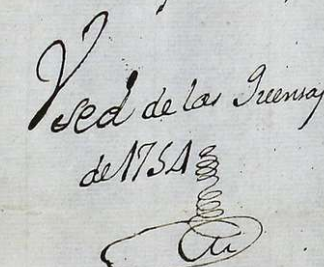 Vsed de las Quensas
de 1754